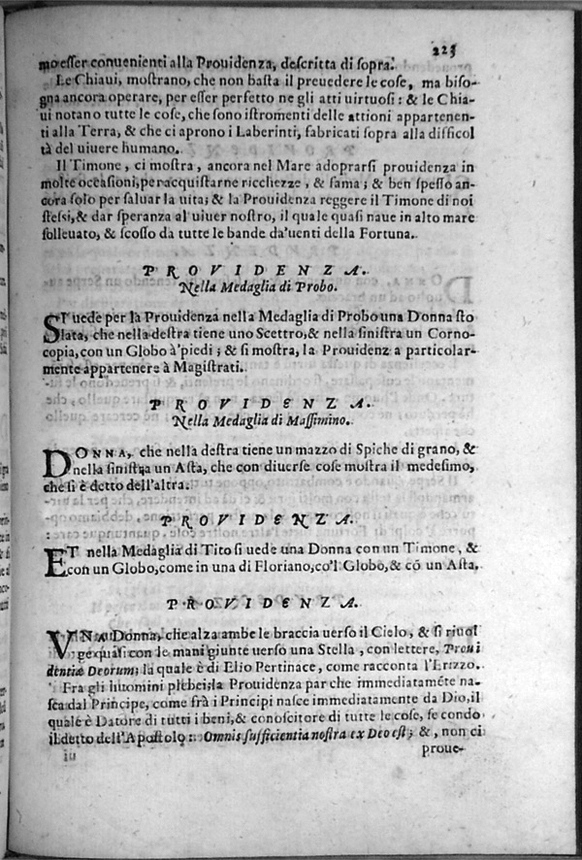 225
mo esser conuenienti alla Prouidenza, descritta di sopra.
Le Chiaui, mostrano, che non basta il preuedere le cose, ma biso-
gna ancora operare, per esser perfetto ne gli atti virtuosi: & le Chia-
ui notano tutte le cose, che sono istromenti delle attioni appartenen-
ti alla Terra, & che ci aprono i Laberinti, fabricati sopra alla difficol
tà del uiuere humano.
Il Timone, ci mostra, ancora nel Mare adoprarsi prouidenza in
molte occasioni, per acquistarne ricchezze, & fama; & ben spesso an-
cora solo per saluar la uita; & la Prouidenza reggere il Timone di noi
stessi, & dar speranza al uiuer nostro, il quale quasi naue in alto mare
solleuato, & scosso da tutte le bande da'uenti della Fortuna.
PROVIDENZA.
Nella Medaglia di Probo.
SI uede per la Prouidenza nella Medaglia di Probo una Donna sto
lata, che nella destra tiene uno Scettro, & nella sinistra un Corno-
copia, con un Globo à'piedi; & si mostra, la Prouidenza particolar-
mente appartenere à Magistrati.
PROVIDENZA.
Nella Medaglia di Massimino.
DONNA, che nella destra tiene un mazzo di Spiche di grano, &
nella sinistra un Asta, che con diuerse cose mostra il medesimo,
che si è detto dell'altra.
PROVIDENZA.
ET nella Medaglia di Tito si uede una Donna con un Timone, &
con un Globo, come in una di Floriano, co'l Globo, & cō un Asta.
PROVIDENZA.
VNA Donna, che alza ambe le braccia uerso il Cielo, & si riuol
ge quasi con le mani giunte uerso una Stella, con lettere, Proui
dentiæ Deorum; la quale è di Elio Pertinace, come racconta l'Erizzo.
Fra gli huomini plebei; la Prouidenza par che immediatamēte na-
sca dal Principe, come frà i Principi nasce immediatamente da Dio, il
quale è Datore di tutti i beni, & conoscitore di tutte le cose, secondo
il detto dell'Apostolo: Omnis sufficientia nostra ex Deo est; &, non ci
proue-